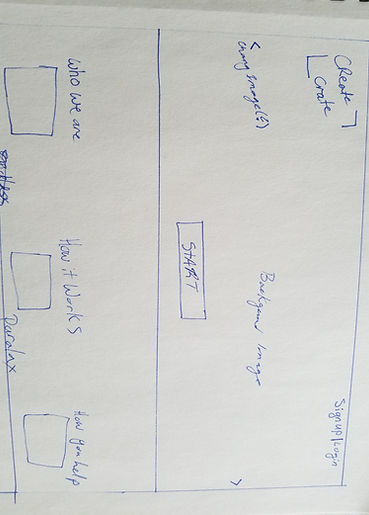 Create
Crate
Signup/Login
<
Chang Image(s)
Backgound Image
>
START
Who we are
How it Works
How you help
Paralax